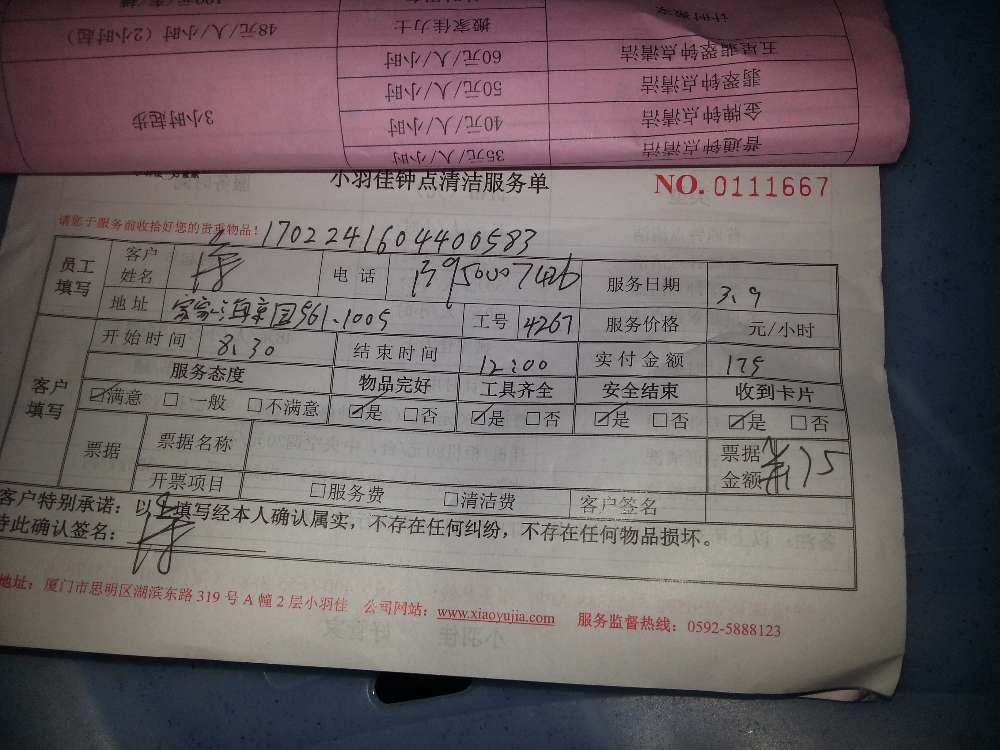 计时搬家
搬家佳力士 48元/人/小时（2小时起）
五星翡翠钟点清洁 60元/人/小时
翡翠钟点清洁 50元/人/小时
金牌钟点清洁 40元/人/小时 3小时起步
普通钟点清洁 35元/人/小时
小羽佳钟点清洁服务单 NO. 0111667
请您于服务前收拾好您的贵重物品！ 1702241604400583
员工填写 客户姓名 电话 服务日期 3.9
地址 961.1005 工号 4267 服务价格 元/小时
客户填写 开始时间 8:30 结束时间 12:00 实付金额 175
服务态度 物品完好 工具齐全 安全结束 收到卡片
☑满意 □一般 □不满意 ☑是 □否 ☑是 □否 ☑是 □否 ☑是 □否
票据 票据名称 票据金额 175
开票项目 □服务费 □清洁费 客户签名
客户特别承诺：以上填写经本人确认属实，不存在任何纠纷，不存在任何物品损坏。
特此确认签名：
地址：厦门市思明区湖滨东路 319 号 A 幢 2 层小羽佳 公司网站：www.xiaoyujia.com 服务监督热线：0592-5888123